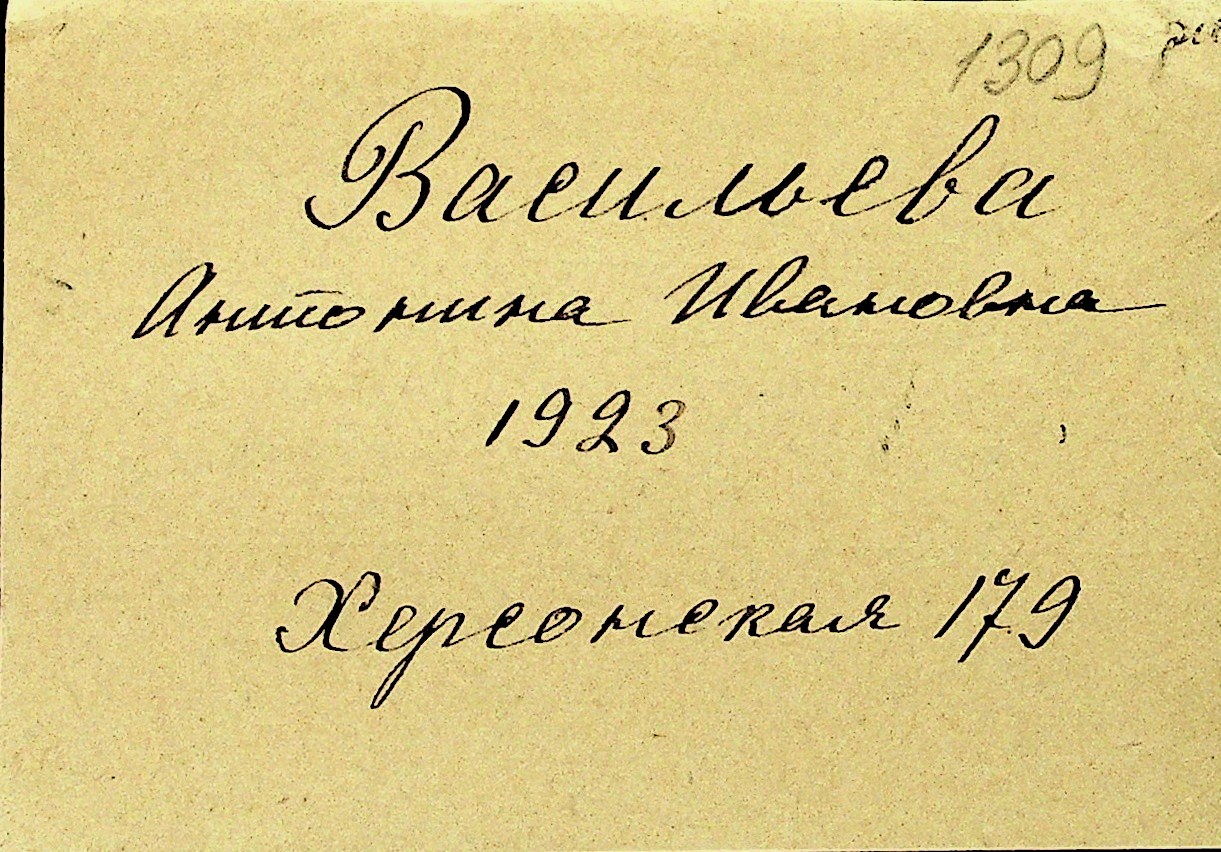 1309
Васильева
Антонина Ивановна
1923
Херсонская 179